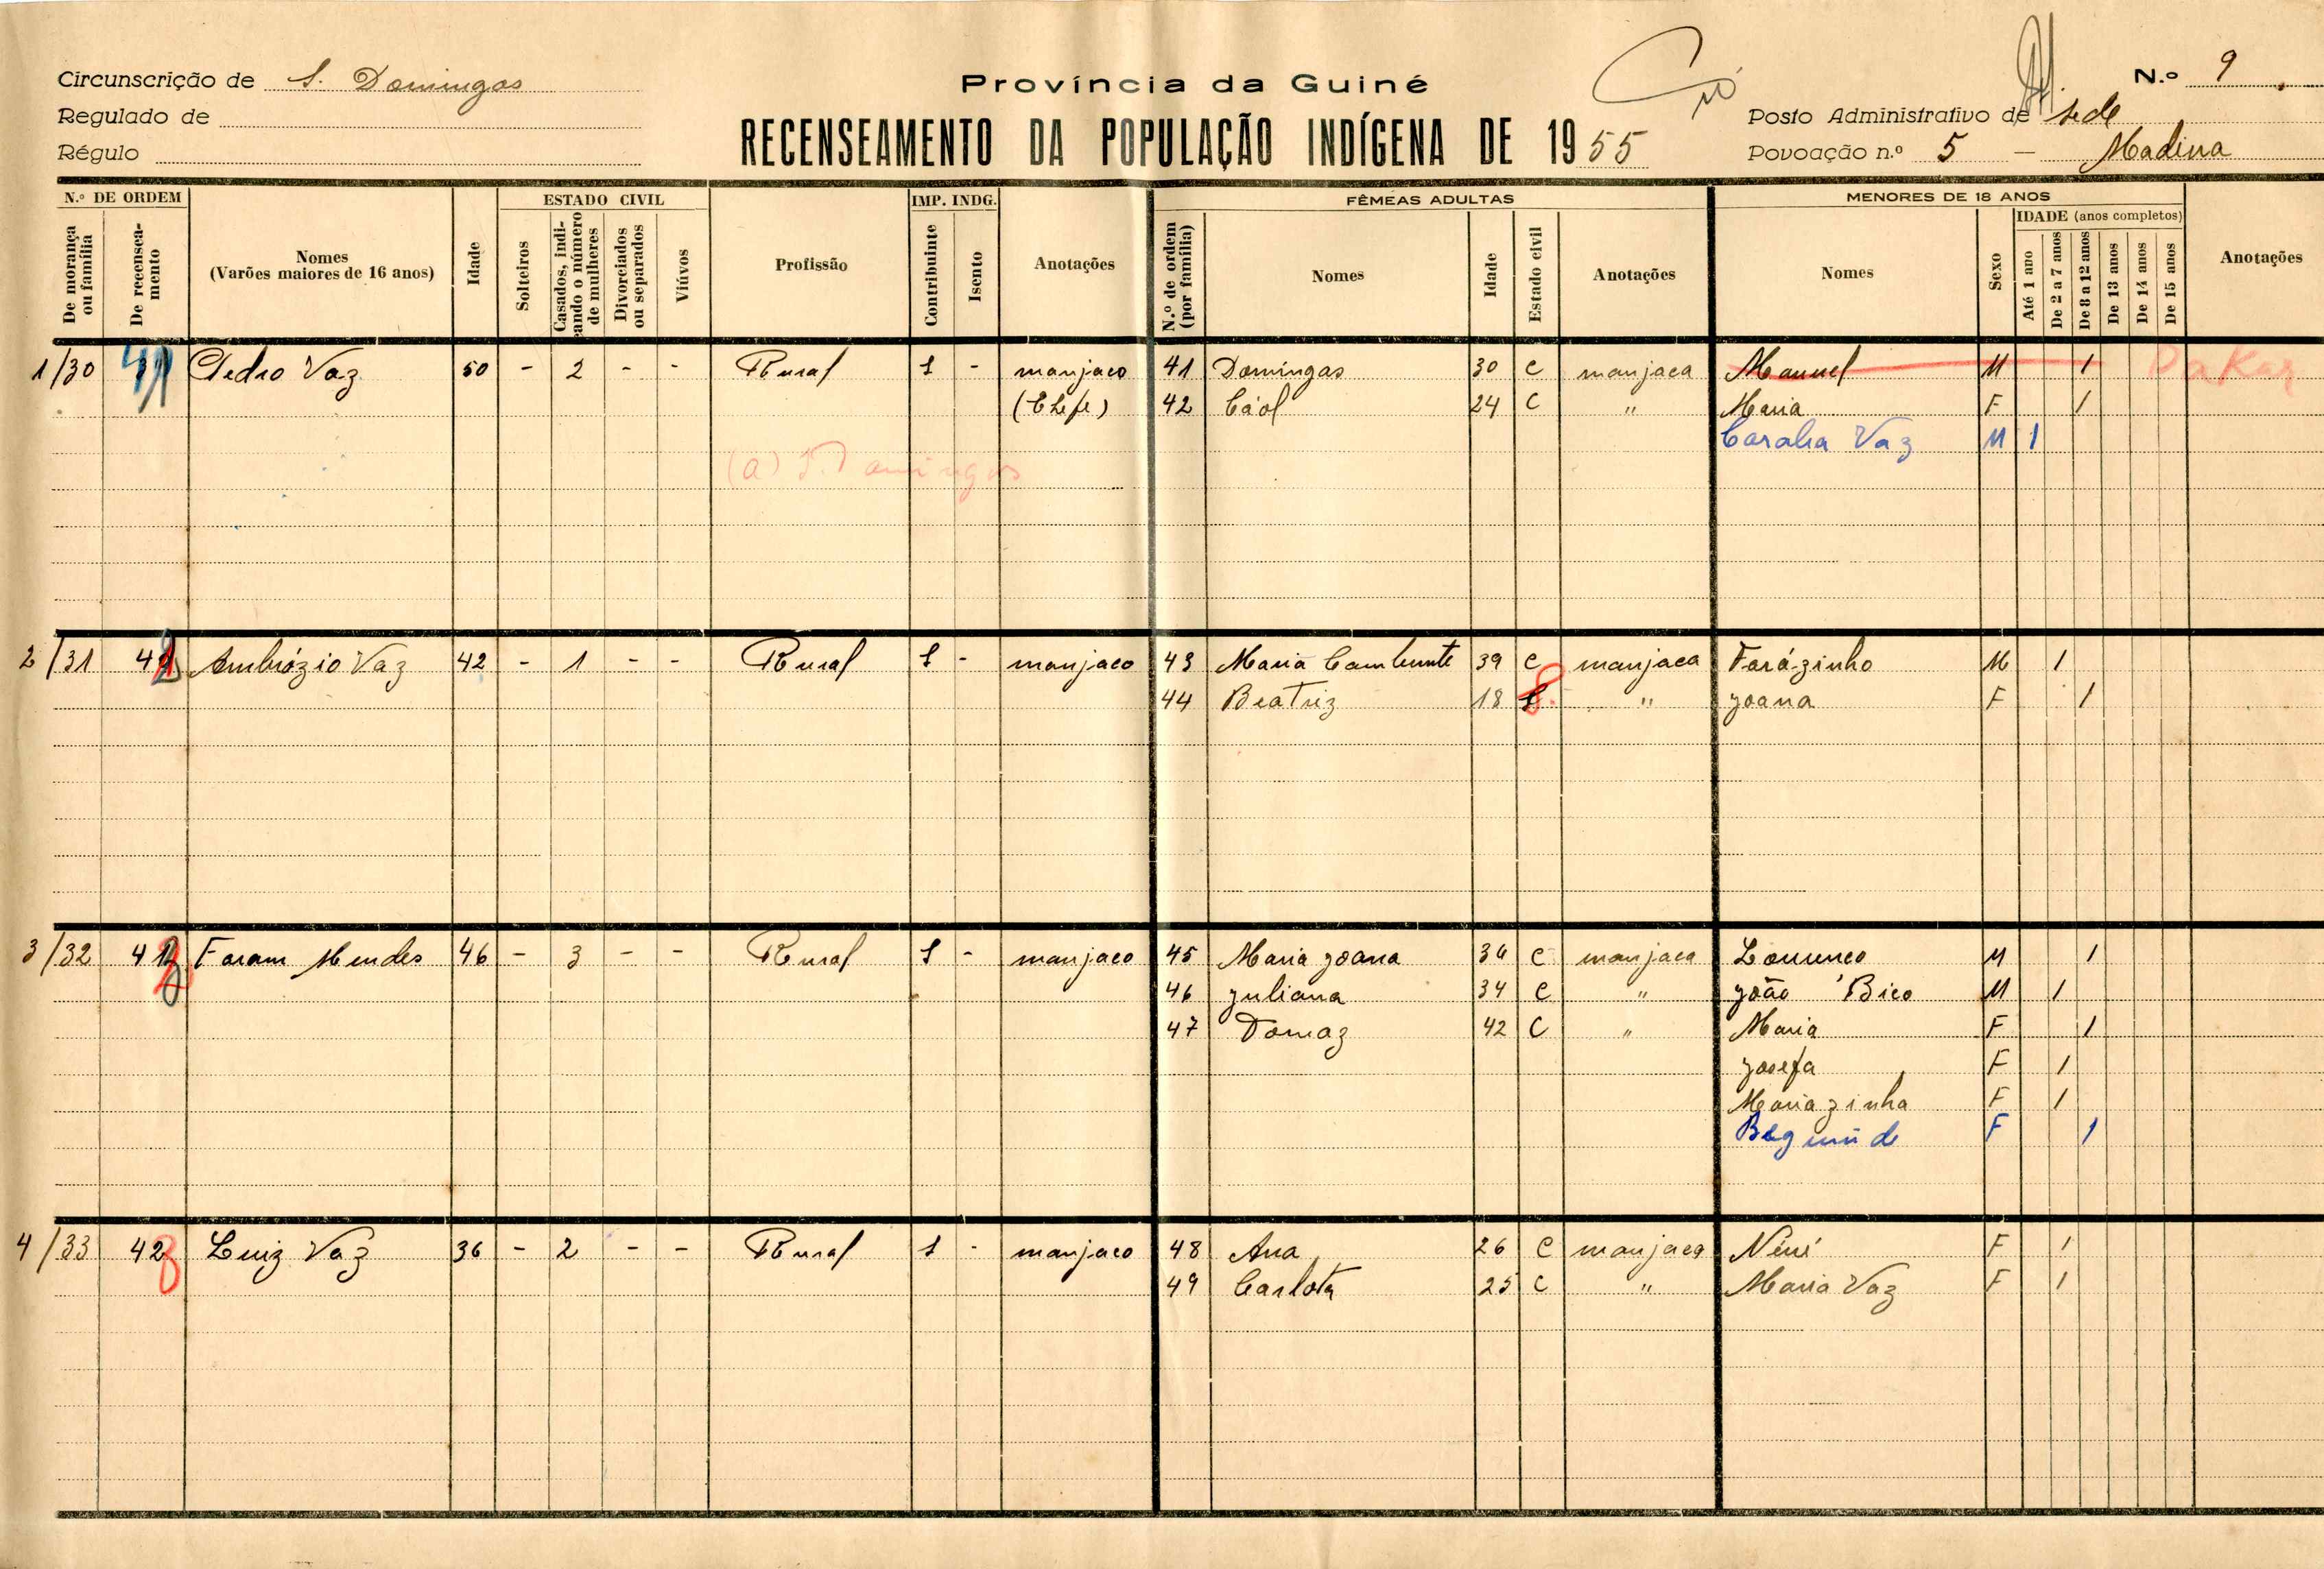 Circunscrição de S. Domingos
Regulado de
Régulo
Província da Guiné
RECENSEAMENTO DA POPULAÇÃO INDÍGENA DE 1955
N.º 9
Posto Administrativo de sede
Povoação n.º 5 — Madina
N.º DE ORDEM
De morança ou família
De recenseamento
Nomes (Varões maiores de 16 anos)
Idade
ESTADO CIVIL
Solteiros
Casados, indicando o número de mulheres
Divorciados ou separados
Viúvos
Profissão
IMP. INDG.
Contribuinte
Isento
Anotações
FÊMEAS ADULTAS
N.º de ordem (por família)
Nomes
Idade
Estado civil
Anotações
MENORES DE 18 ANOS
Nomes
Sexo
IDADE (anos completos)
Até 1 ano
De 2 a 7 anos
De 8 a 12 anos
De 13 anos
De 14 anos
De 15 anos
Anotações
1/30 Pedro Vaz 50 - 2 - - Rural 1 - manjaco 41 Domingas 30 C manjaca Manuel M 1 Dakar
(Chefe) 42 Cáol 24 C " Maria F 1
Caralia Vaz M 1
(a) S. Domingos
2/31 Ambrózio Vaz 42 - 1 - - Rural 1 - manjaco 43 Maria 39 C manjaca Farázinho M 1
44 Beatriz 18 S " Joana F 1
3/32 Faram Mendes 46 - 3 - - Rural 1 - manjaco 45 Maria Joana 36 C manjaca Lourenco M 1
46 Juliana 34 C " João Bico M 1
47 Domaz 42 C " Maria F 1
Josefa F 1
Mariazinha F 1
F 1
4/33 Luiz Vaz 36 - 2 - - Rural 1 - manjaco 48 Ana 26 C manjaca Néné F 1
49 Carlota 25 C " Maria Vaz F 1